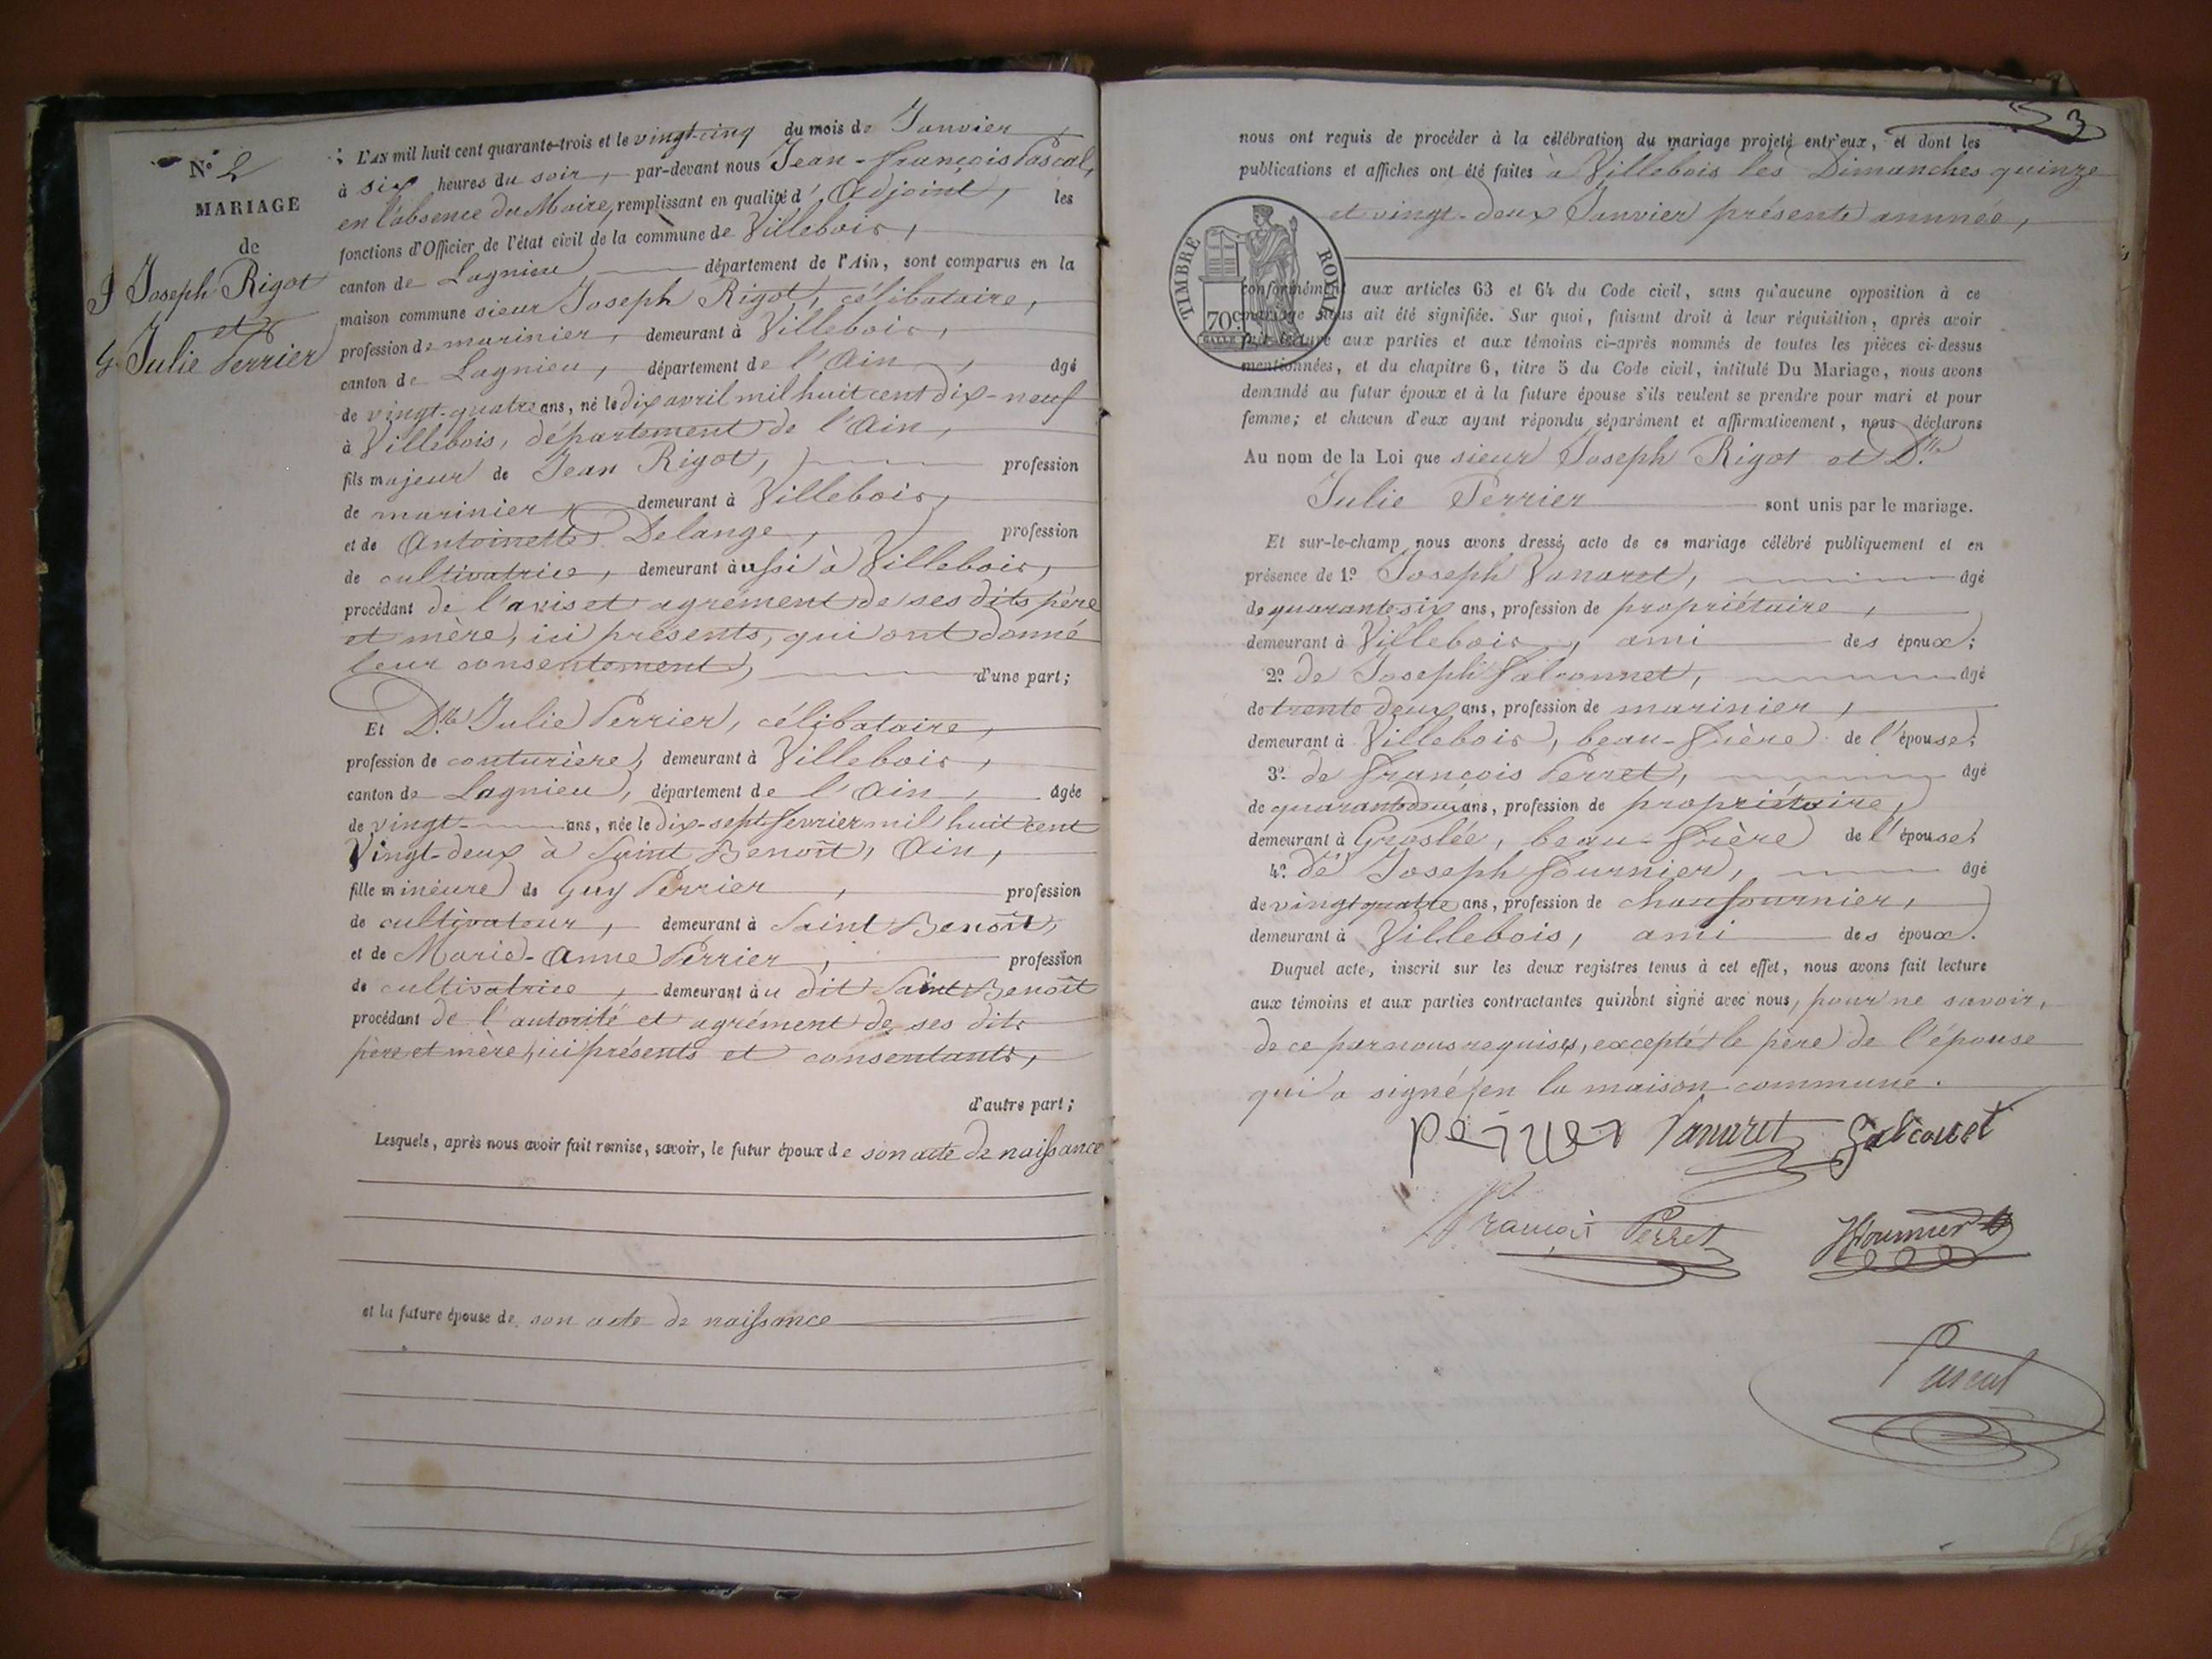 N° 2
MARIAGE
de
Joseph Rigot
et
Julie Perrier
L'AN mil huit cent quarante-trois et le vingt-cinq du mois de Janvier
à six heures du soir, par-devant nous Jean-françois Pascal,
en l'absence du Maire, remplissant en qualité d'Adjoint, les
fonctions d'Officier de l'état civil de la commune de Villebois,
canton de Lagnieu département de l'Ain, sont comparus en la
maison commune sieur Joseph Rigot, célibataire,
profession de marinier, demeurant à Villebois,
canton de Lagnieu, département de l'Ain, âgé
de vingt-quatre ans, né le dix avril mil huit cent dix-neuf
à Villebois, département de l'Ain,
fils majeur de Jean Rigot, profession
de marinier, demeurant à Villebois,
et de Antoinette Delange, profession
de cultivatrice, demeurant aussi à Villebois,
procédant de l'avis et agrément de ses dits père
et mère, ici présents, qui ont donné
leur consentement, d'une part;
Et Dlle Julie Perrier, célibataire,
profession de couturière, demeurant à Villebois,
canton de Lagnieu, département de l'Ain, âgée
de vingt ans, née le dix-sept fevrier mil huit cent
Vingt-deux à Saint Benoît, Ain,
fille mineure de Guy Perrier, profession
de cultivateur, demeurant à Saint Benoît,
et de Marie-Anne Perrier, profession
de cultivatrice, demeurant au dit Saint Benoît
procédant de l'autorité et agrément de ses dits
père et mère, ici présents et consentants,
d'autre part;
Lesquels, après nous avoir fait remise, savoir, le futur époux de son acte de naissance
et la future épouse de son acte de naissance
3
nous ont requis de procéder à la célébration du mariage projeté entr'eux, et dont les
publications et affiches ont été faites à Villebois les Dimanches quinze
et vingt-deux Janvier présente annnée,
TIMBRE ROYAL
70c
conformément aux articles 63 et 64 du Code civil, sans qu'aucune opposition à ce
mariage nous ait été signifiée. Sur quoi, faisant droit à leur réquisition, après avoir
fait lecture aux parties et aux témoins ci-après nommés de toutes les pièces ci-dessus
mentionnées, et du chapitre 6, titre 5 du Code civil, intitulé Du Mariage, nous avons
demandé au futur époux et à la future épouse s'ils veulent se prendre pour mari et pour
femme; et chacun d'eux ayant répondu séparément et affirmativement, nous déclarons
Au nom de la Loi que sieur Joseph Rigot et Dlle
Julie Perrier sont unis par le mariage.
Et sur-le-champ nous avons dressé acte de ce mariage célébré publiquement et en
présence de 1° Joseph Vanaret, âgé
de quarante six ans, profession de propriétaire,
demeurant à Villebois, ami des époux;
2° de Joseph falconnet, âgé
de trente deux ans, profession de marinier,
demeurant à Villebois, beau-frère de l'épouse;
3° de françois Perret, âgé
de quarante deux ans, profession de propriétaire,
demeurant à Groslée, beau-frère de l'épouse;
4° de Joseph fournier, âgé
de vingt quatre ans, profession de chaufournier,
demeurant à Villebois, ami des époux.
Duquel acte, inscrit sur les deux registres tenus à cet effet, nous avons fait lecture
aux témoins et aux parties contractantes qui n'ont signé avec nous, pour ne savoir,
de ce par nous requises, excepté le père de l'épouse
qui a signé, en la maison commune.
perrier Vanaret falconet
françois Perret Jfournier
Pascal